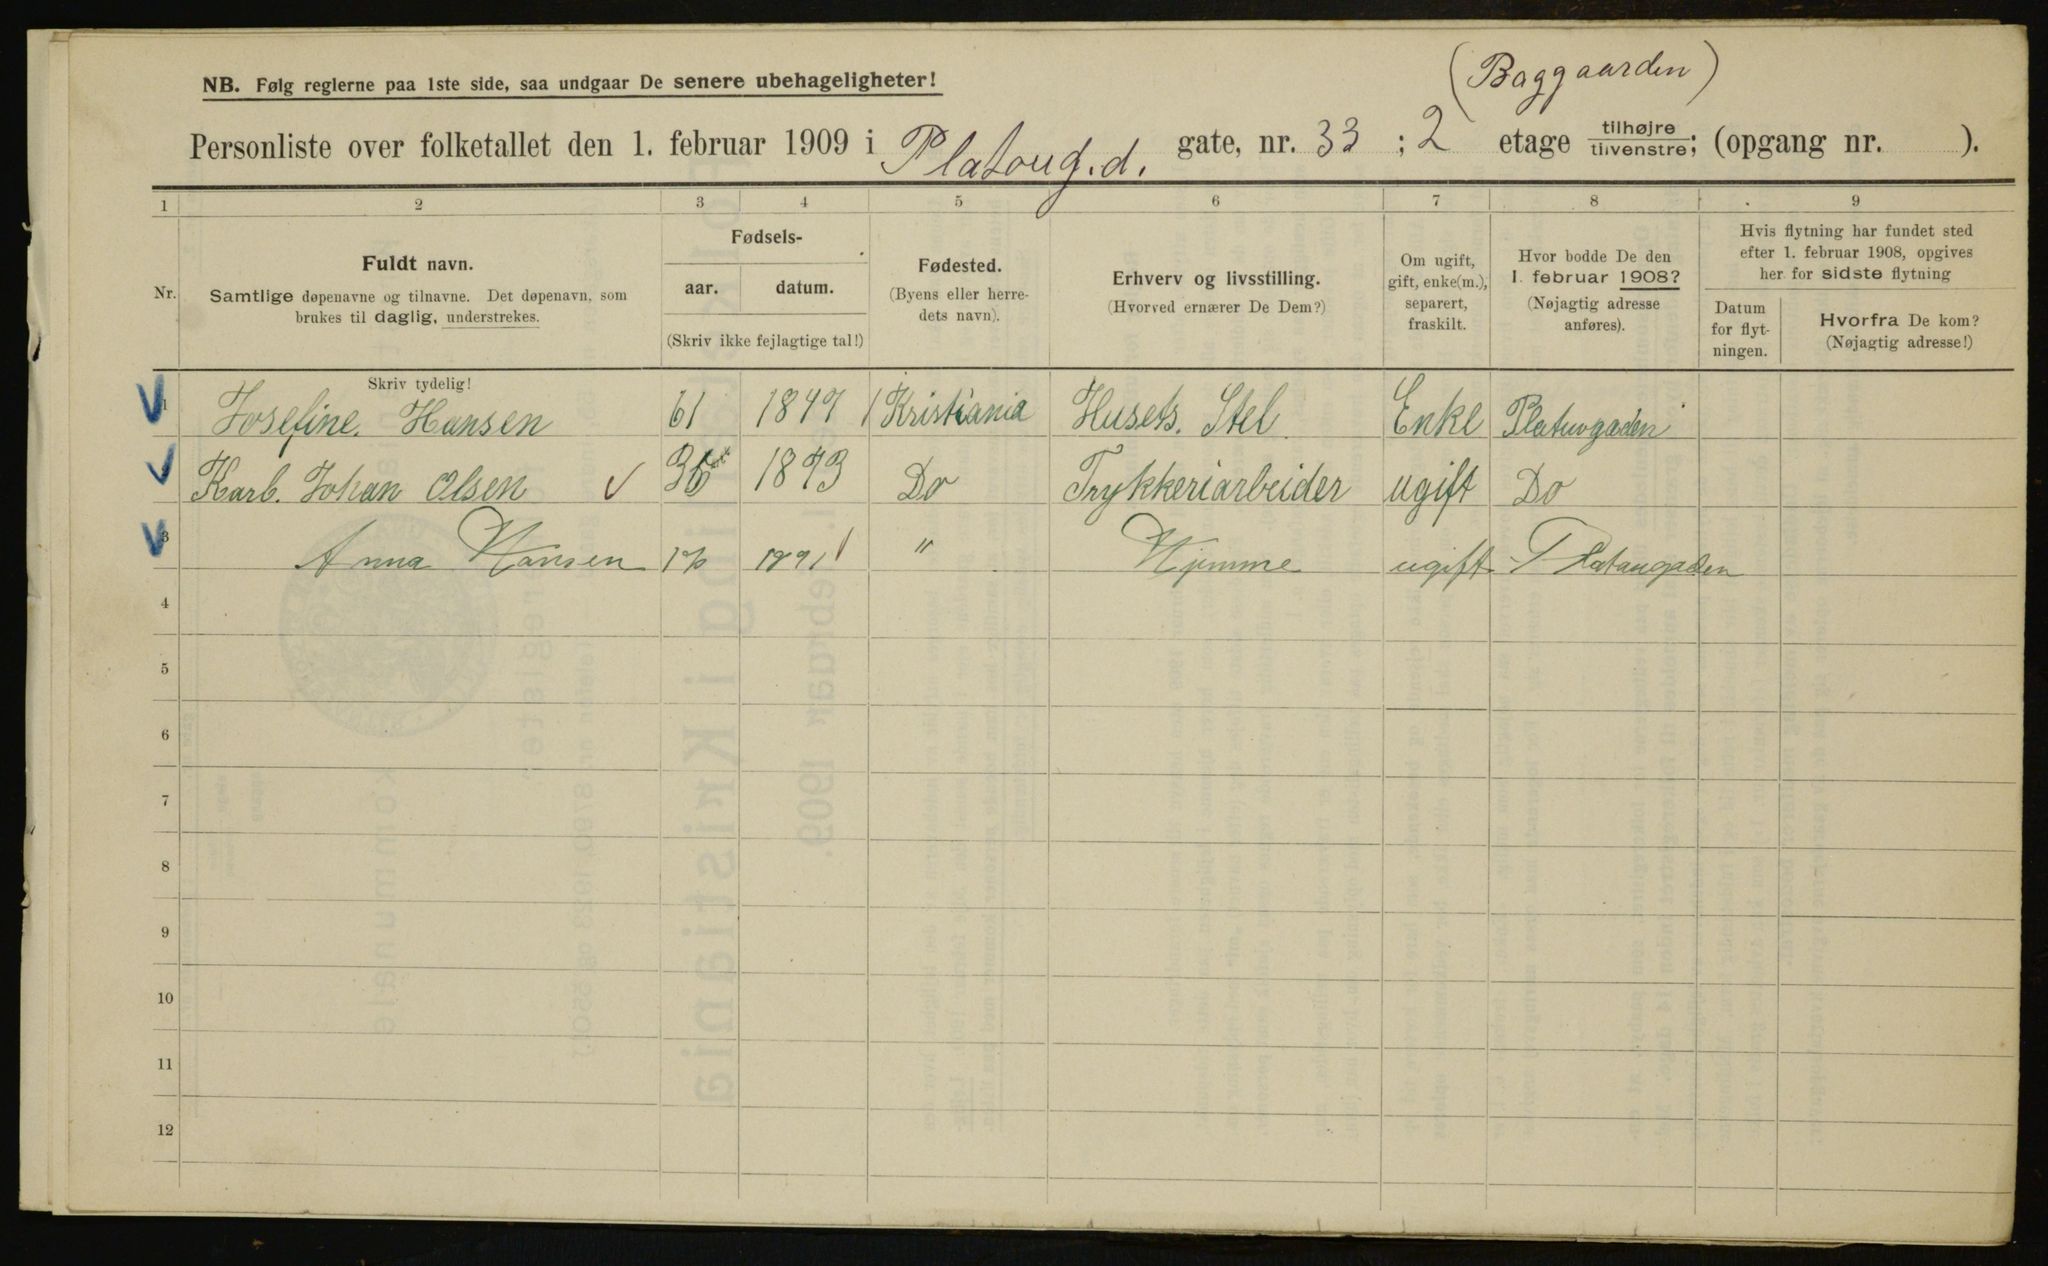 (Baggaarden)
NB. Følg reglerne paa 1ste side, saa undgaar De senere ubehageligheter!
Personliste over folketallet den 1. februar 1909 i Platoug.d. gate, nr. 33 ; 2 etage tilhøjre tilvenstre; (opgang nr. ).
1 2 3 4 5 6 7 8 9
Nr.
Fuldt navn.
Samtlige døpenavne og tilnavne. Det døpenavn, som
brukes til daglig, understrekes.
Skriv tydelig!
Fødsels-
aar. datum.
(Skriv ikke fejlagtige tal!)
Fødested.
(Byens eller herre-
dets navn).
Erhverv og livsstilling.
(Hvorved ernærer De Dem?)
Om ugift,
gift, enke(m.),
separert,
fraskilt.
Hvor bodde De den
1. februar 1908?
(Nøjagtig adresse
anføres).
Hvis flytning har fundet sted
efter 1. februar 1908, opgives
her for sidste flytning
Datum
for flyt-
ningen.
Hvorfra De kom?
(Nøjagtig adresse!)
1 Josefine. Hansen 61 1847 Kristiania Husets. Stel Enke Platuvgaden
2 Karl. Johan Olsen 36 1873 Do Trykkeriarbeider ugift Do
3 Anna Hansen 1891 " Hjemme ugift Plataugaden
4
5
6
7
8
9
10
11
12